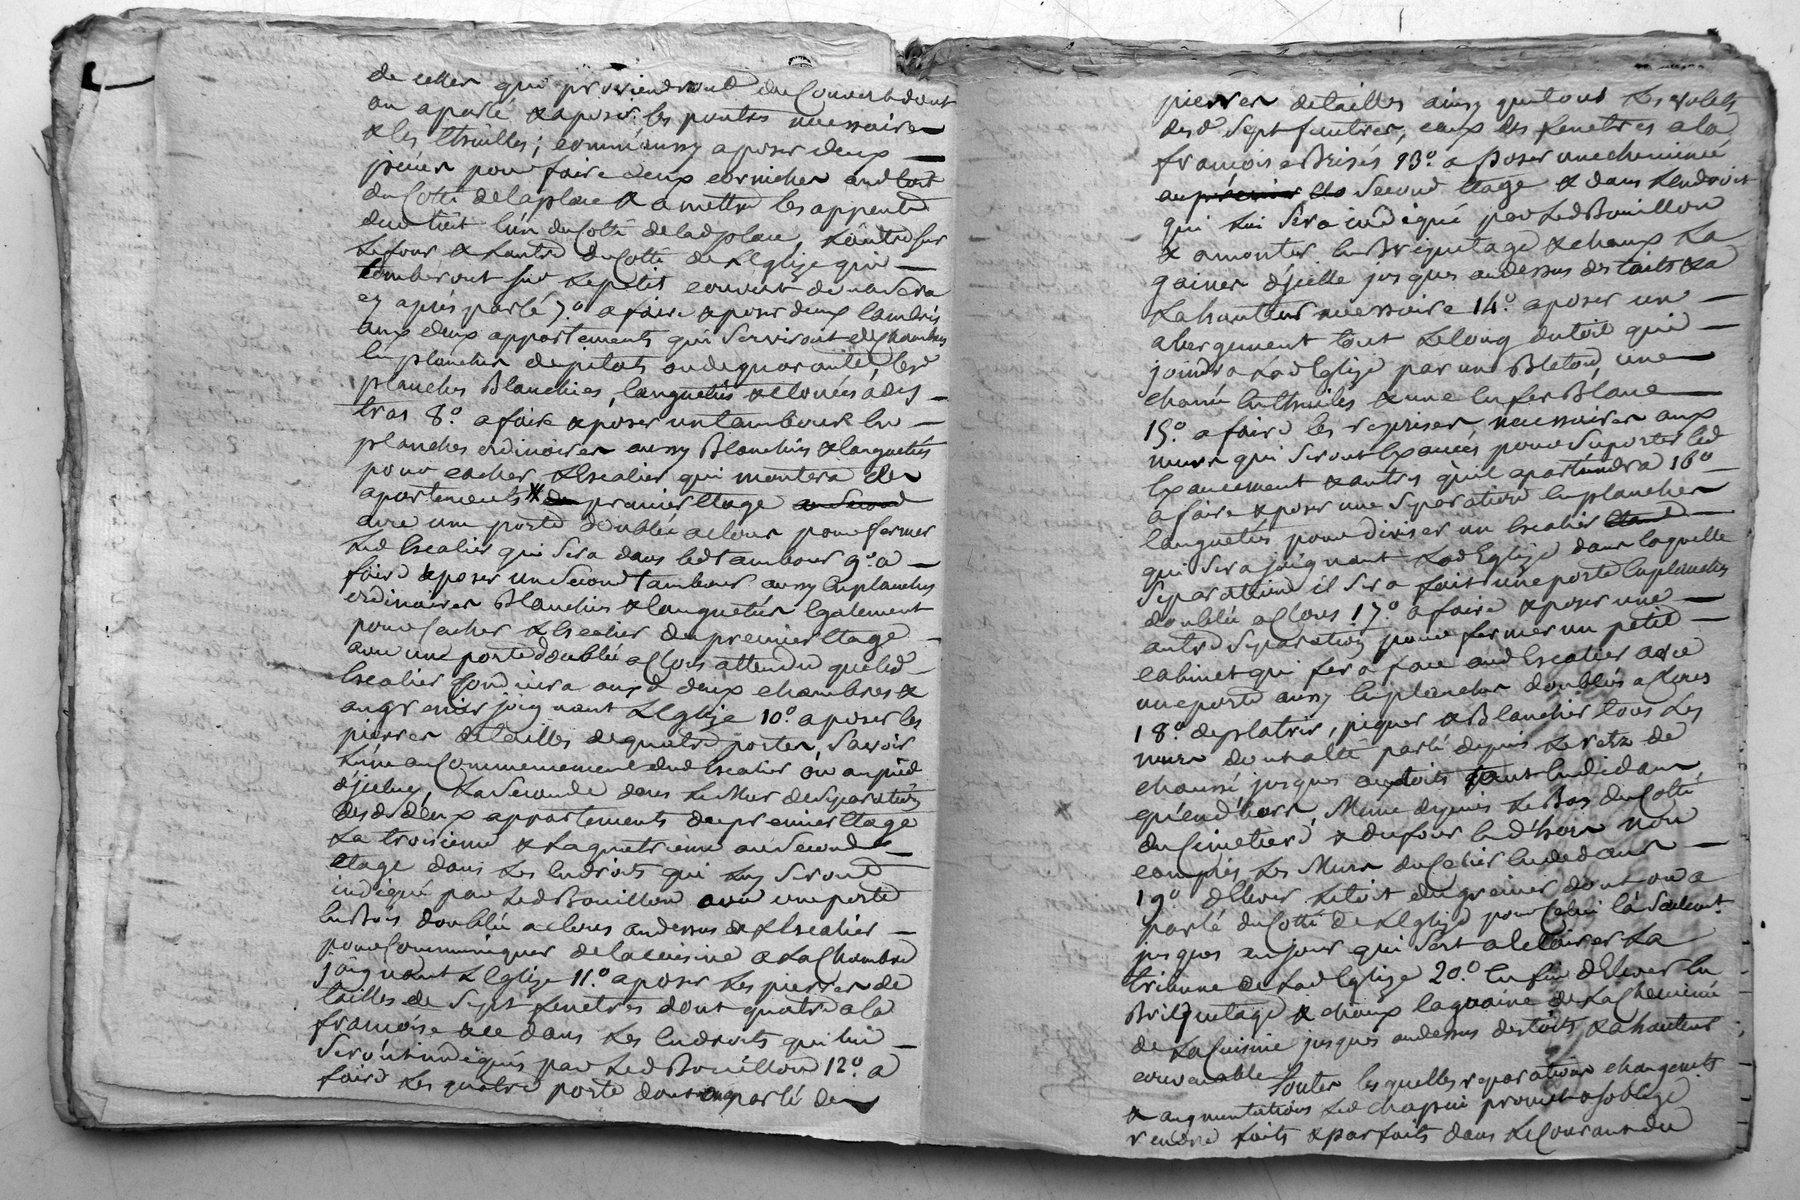 de celles qui proviendront du Couvert dont
on a parlé & a poser les poutres necessaires
& les thuilles; comm'aussy a poser deux
pour faire deux corniches aud toit
du Cotté de la place & a mettre les appents
dud toit l'un du Cotté de lad place, L'autre sur
Le four & L'autre du Cotté de L'Eglize qui
tomberont sur Le petit couvert dont sera
cy aprés parlé 7.º a faire & poser deux lambris
aux deux appartements qui serviront de Chambres
en planches de pilats ou de quarante, lesd
planches Blanchies, languetées & clouées a
8.º a faire & poser un tambour en
planches ordinaires aussy Blanchies & languetées
pour cacher L'Escalier qui montera des
apartements du premier Etage au second
avec une porte doublée a clous pour fermer
Led Escalier qui sera dans led tambour 9.º a
faire & poser un second tambour aussy en planches
ordinaires Blanchies & languetées Egalement
pour Cacher L'Escalier du premier Etage
avec une porte doublée a Clous attendu que led
Escalier Conduira auxd deux chambres &
au grenier joignant L'Eglize 10.º a poser les
pierres de tailles de quatre portes, Savoir
L'une au Commencement dud Escalier ou au pied
d'jceluy, La Seconde dans Le Mur de Separation
desd deux appartements du premier Etage
La troisieme & La quatrieme au Second
Etage dans Les Endroits qui Luy seront
indiqué par Led Bouillon avec une porte
en Bois doublée a clous au dessus de L'Escalier
pour Communiquer de la Cuisine a La Chambre
joignant L'Eglize 11.º a poser Les pierres de
tailles de Sept fenetres dont quatre a la
françoise & ce dans Les Endroits qui lui
seront indiqués par Led Bouillon 12.º a
faire Les quatre porte dont on a parlé de
pierres de tailles ainsy que tous Les volets
desd Sept fenetres, ceux des fenetres a la
françoise Brisés 13.º a poser une cheminée
au premier Second Etage & dans L'endroit
qui Lui sera indiqué par Led Bouillon
& a monter en Briquetage & chaux La
gaine d'jcelle jusques au dessus des toits & a
La hauteur necessaire 14.º a poser un
abergement tout Le long du toit qui
joindra Lad Eglize par un Bleton, une
chanée en thuiles & une en fer Blanc
15.º a faire les reprises necessaires aux
murs qui seront Exaucés pour suporter led
Exaucement & autres qu'il apartiendra 16.º
a faire & poser une Separation en planches
languetées pour diviser un Escalier
qui sera joignant Lad Eglize dans laquelle
Separation il sera fait une porte en planches
doublée a Clous 17.º a faire & poser une
autre Separation pour fermer un petit
cabinet qui fera face aud Escalier avec
une porte aussy en planches doublées a Clous
18.º de platrir, piquer & Blanchir tous Les
murs dont a été parlé depuis Le retz de
chaussé jusques aux toits tant En dedans
qu'en d'hors, Meme depuis Le Bas du Cotté
du Cimetiere & du four En d'hors non
compris Les Murs du Celier En dedans
19.º d'Elever Le toit du grenier dont on a
parlé du Cotté de L'Eglize pour Celui là seulement
jusques au jour qui sert a Eclairer La
tribune de Lad Eglize 20.º Enfin d'Elever En
Briquetage & chaux la guaine de La Cheminée
de La Cuisine jusques au dessus des toits & a hauteur
convenable. Toutes les quelles reparations changements
& augmentations Led Chapui promet & s'oblige
rendre faits & parfaits dans Le Courant du